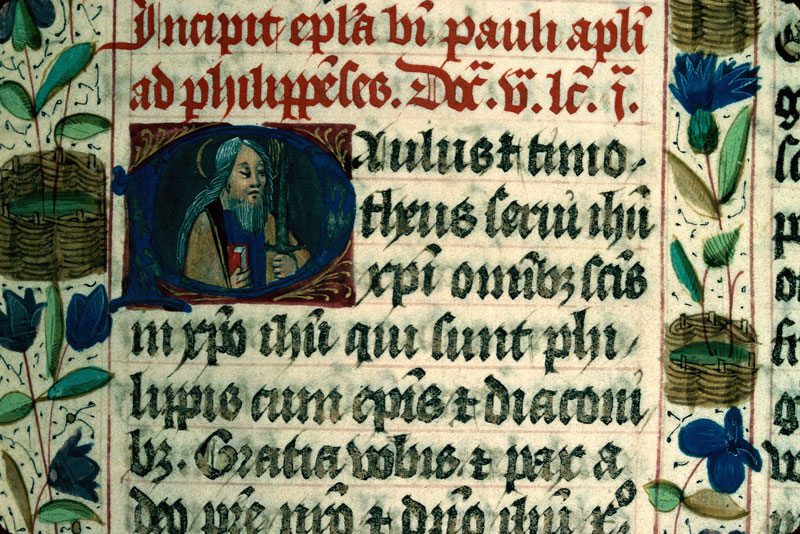 Incipit ep̄la bī pauli apl̄i
ad philippēses. Doc̄. v̄. lc̄. j̄.
Paulus ⁊ timo-
theus serui ihū
xp̄i omībꝫ sc̄is
in xp̄o ihū qui sunt phi-
lippis cum ep̄is ⁊ diaconi
bꝫ. Gratia vobis ⁊ pax a
deo pr̄e nr̄o ⁊ dn̄o ihū x̄o